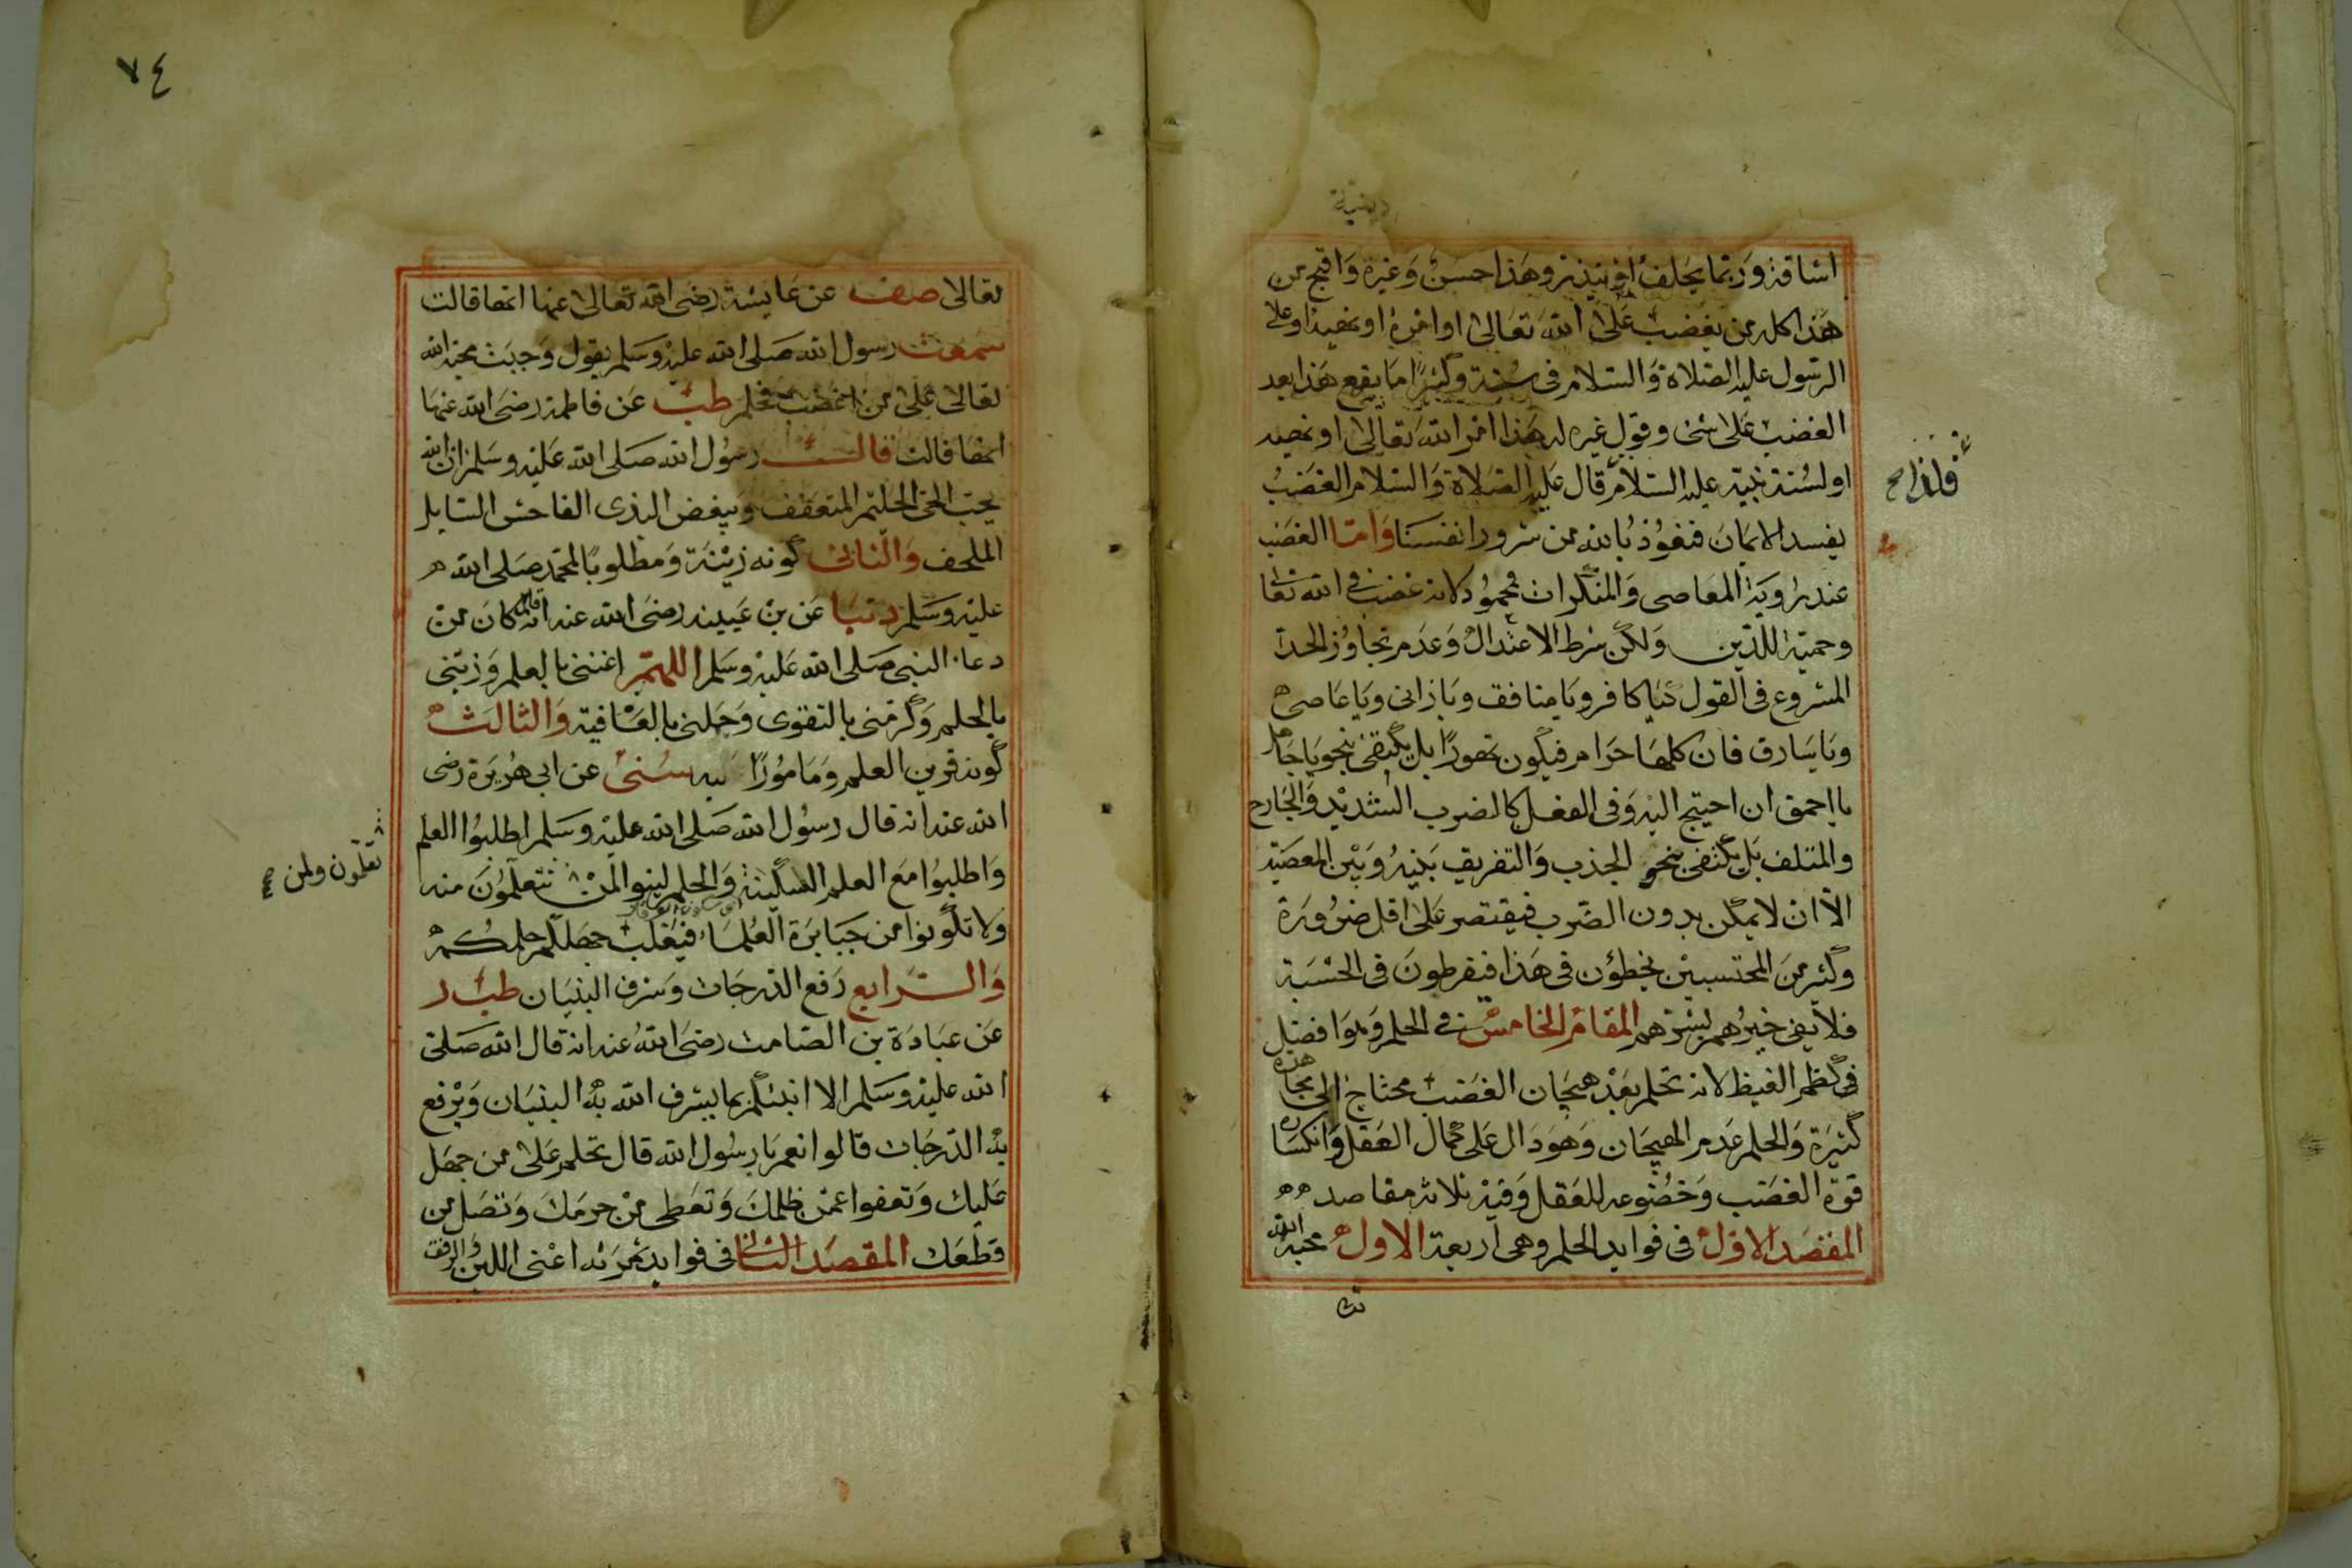 دينية
اشاقة وربما يحلف او نيذيز وهذا حسن وغيره واقبح من
هذا كله من يغضب على الله تعالى او امره او نهيه او على
الرسول عليه الصلاة والسلام فى سنته وكثيرا ما يقع هذا بعد
الغضب على شئ وقول غيره له هذا امر الله تعالى او نهيه
او لسنة نبيه عليه السلام قال عليه الصلاة والسلام الغضب
فلذا صح
يفسد الايمان فنعوذ بالله من شرور انفسنا واما الغضب
عند رؤية المعاصى والمنكرات فمحمود لانه غضب فى الله تعالى
وحمية للدين ولكن شرط الاعتدال وعدم تجاوز الحد
المشروع فى القول كيا كافر ويا منافق ويا زانى ويا عاصى
ويا سارق فان كلها حرام فيكون تهورا بل يكتفى بنحو يا جاهل
يا احمق ان احتيج اليه وفى الفعل كالضرب الشديد والجارح
والمتلف بل يكتفى بنحو الجذب والتفريق بينه وبين المعصية
الا ان لا يمكن بدون الضرب فيقتصر على اقل ضرورة
وكثير من المحتسبين يخطؤن فى هذا فيفرطون فى الحسبة
فلا يفى خيرهم بشرهم المقام الخامس فى الحلم وهو افضل
فى كظم الغيظ لانه تحلم بعد هيجان الغضب محتاج الى مجاهدة
كثيرة والحلم عدم الهيجان وهو دال على كمال العقل وانكسار
قوة الغضب وخضوعه للعقل وفيه ثلاثة مقاصد
المقصد الاول فى فوايد الحلم وهى اربعة الاول محبة الله
٧٤
تعالى صف عن عايشة رضى الله تعالى عنها انها قالت
سمعت رسول الله صلى الله عليه وسلم يقول وجبت محبة الله
تعالى على من اغضب فحلم طب عن فاطمة رضى الله عنها
انها قالت قالت رسول الله صلى الله عليه وسلم ان الله
يحب الحى الحليم المتعفف ويبغض البذى الفاحش السايل
الملحف والثانى كونه زينة ومطلوبا لمحمد صلى الله
عليه وسلم دنيا عن بن عيينه رضى الله عنه انه قال كان من
دعا النبى صلى الله عليه وسلم اللهم اغننى بالعلم وزينى
بالحلم وكرمنى بالتقوى وجملنى بالعافية والثالث
كونه قرين العلم ومامورا به سنى عن ابى هريرة رضى
الله عنه انه قال رسول الله صلى الله عليه وسلم اطلبوا العلم
واطلبوا مع العلم السكينة والحلم لينوا لمن تتعلمون منه
تعلمون ولمن صح
ولا تكونوا من جبابرة العلماء فيغلب جهلكم حلمكم
والرابع رفع الدرجات وشرف البنيان طب ر
عن عبادة بن الصامت رضى الله عنه انه قال الله صلى
الله عليه وسلم الا انبئكم بما يشرف الله به البنيان ويرفع
به الدرجات قالوا نعم يا رسول الله قال تحلم على من جهل
عليك وتعفوا عمن ظلمك وتعطى من حرمك وتصل من
قطعك المقصد الثانى فى فوايد ثمرته اعنى اللين والرفق